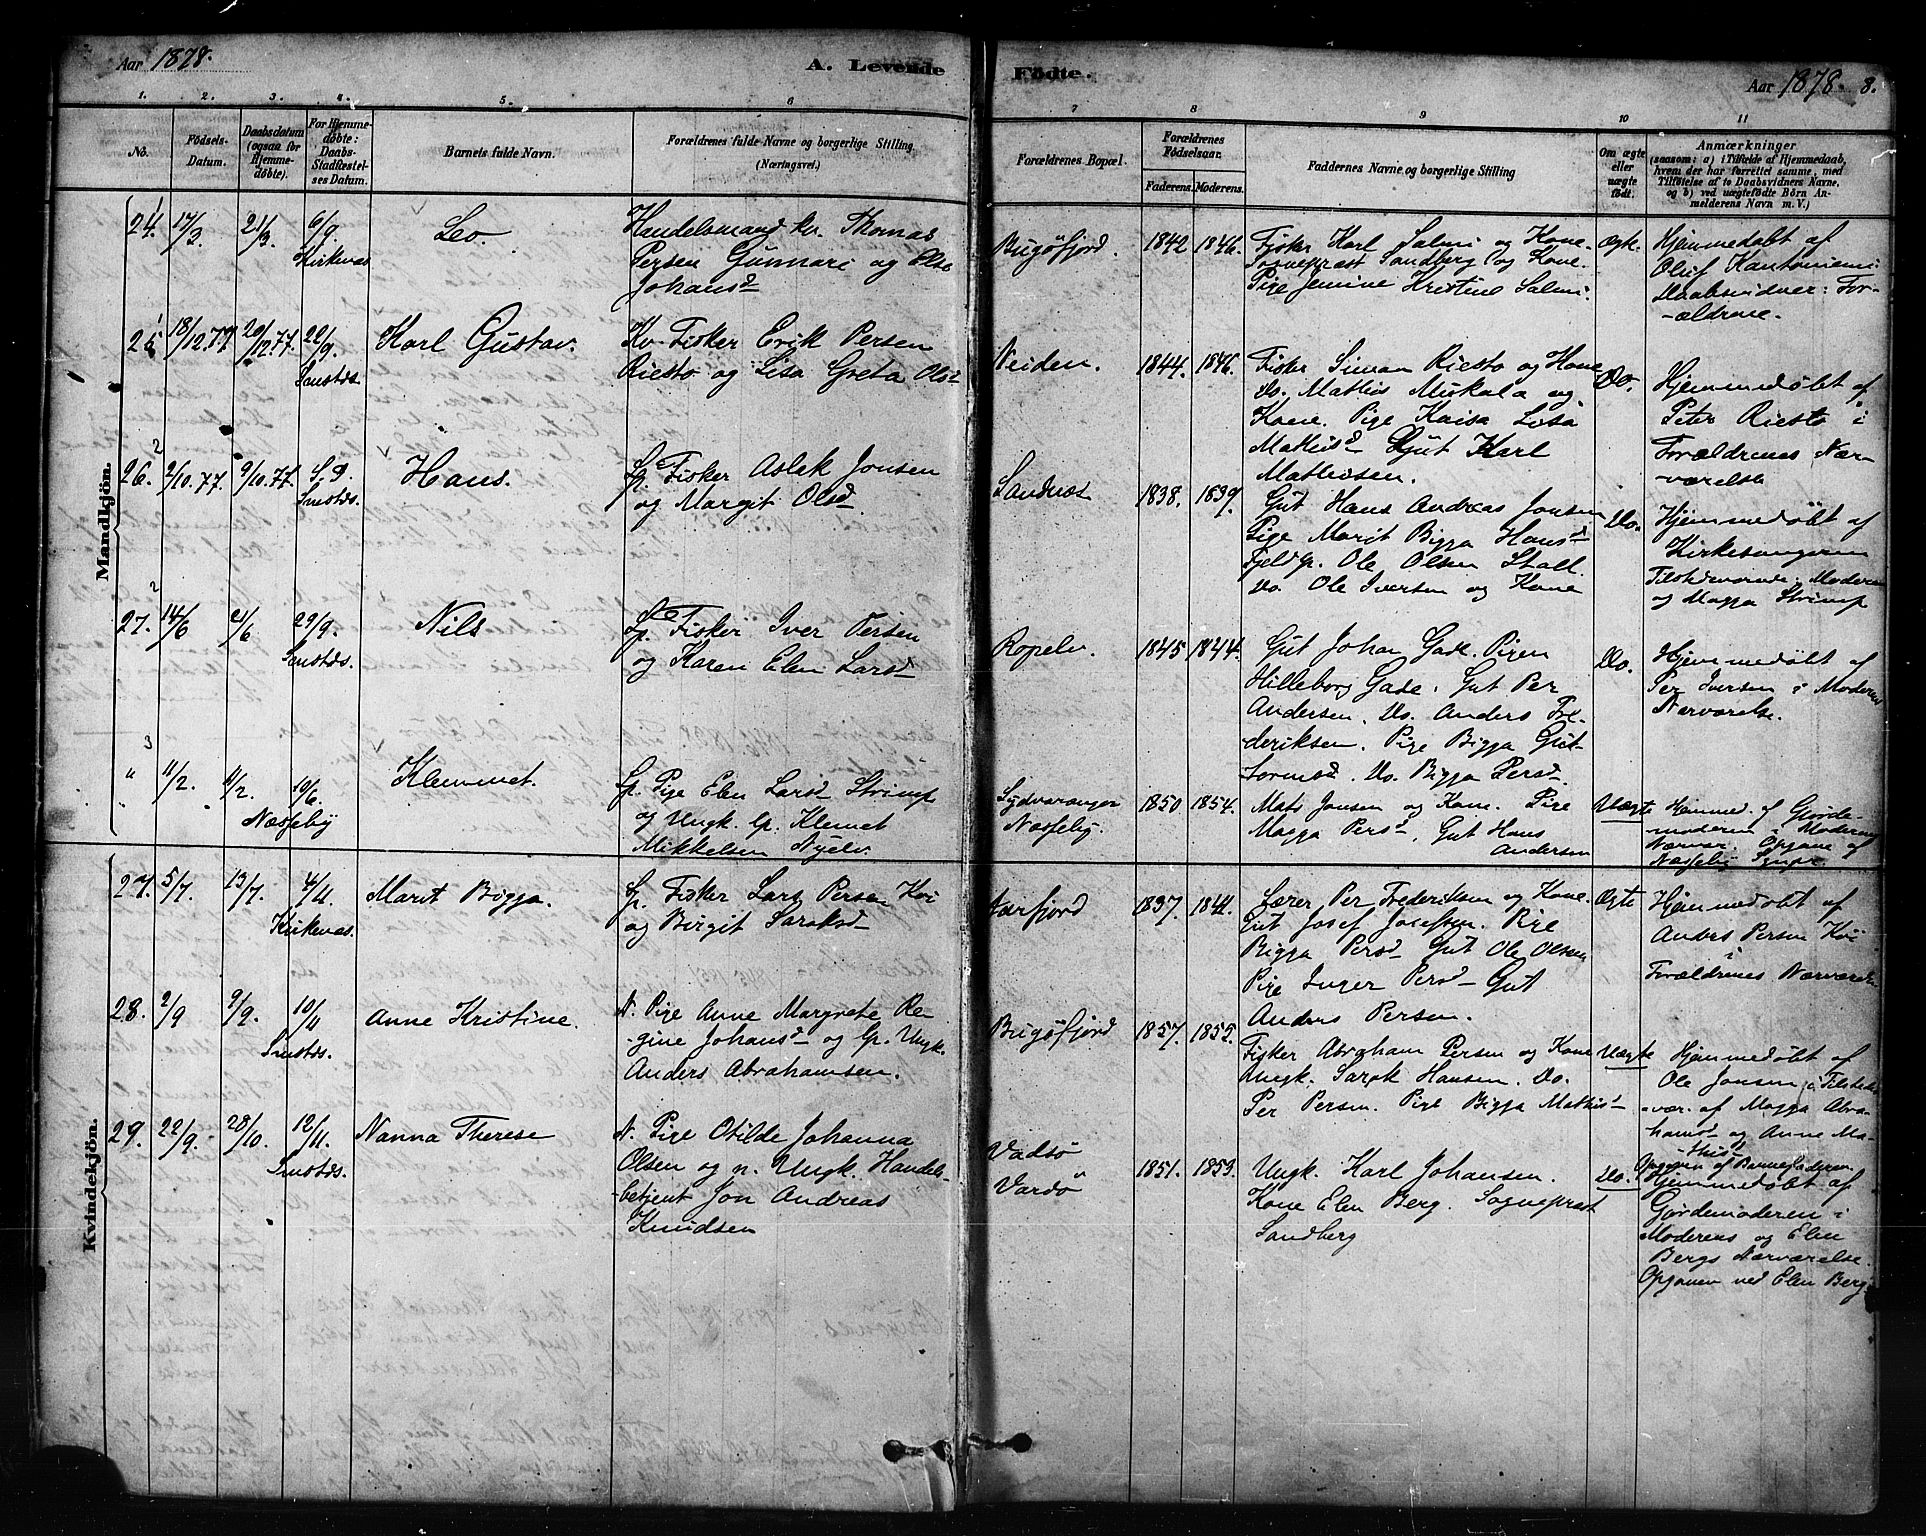 Aar 1878.
A. Levende
Födte.
Aar 1878. 8.
1. 2. 3. 4. 5. 6
7 8 9 10 11
No.
Födsels-
Datum.
Daabsdatum
(ogsaa for
Hjemme-
døbte).
For Hjemme-
døbte:
Daabs-
Stadfæstel-
ses Datum.
Barnets fulde Navn.
Forældrenes fulde Navne og borgerlige Stilling
(Næringsvei.)
Forældrenes Bopæl.
Forældrenes
Födselsaar.
Faderens. Moderens.
Faddernes Navne og borgerlige Stilling
Om ægte
eller
uægte
født.
Anmærkninger
(saasom: a) i Tilfælde af Hjemmedaab,
hvem der har forrettet samme, med
Tilföielse af to Daabsvidners Navne,
og b) ved uægtefödte Börn An-
melderens Navn m. V.)
Mandkjön.
1
24. 17/3 21/3. 6/9. Leo.
Kirkenæs
Handelsmand kv. Thomas
Persen Gunnari og Else
Johansd
Bugöfjord. 1842 1846.
Fisker Karl Salmi og Kone.
Sognepræst Sandberg og Kone.
Pige Jemine Kristine Salmi.
Ægte.
Hjemmedøbt af
Oluf Kantoniemi
Daabsvidner: For-
-ældrene.
1
25 18/12.77 20/12.77. 22/9. Karl Gustav.
Sanstds.
Kv. Fisker Erik Persen
Riesto og Lisa Greta Olsd
Neiden. 1844. 1846.
Fisker Simon Riesto og Kone
Do. Mathis Mukala og
Kone. Pige Kaisa Lisa
Mathisd Gut Karl
Mathisen.
Do.
Hjemmedöbt af
Peter Riesto i
Forældrenes Nær-
værelse
2
26. 2/10.77. 9/10.77. S. D. Hans.
Smstds.
Lp. Fisker Aslak Jonsen
og Margit Olsd.
Sandnæs 1838. 1839.
Gut Hans Andreas Jonsen
Pige Marit Bigga Hansd
Fjeldlp. Ole Olsen Stall.
Do. Ole Iversen og Kone
Do.
Hjemmedöbt af
Kirkesangeren
Tilstedeværende: Moderen
og Magga Strimp
2
27. 14/6 21/6 29/9. Nils
Smstds.
Lp. Fisker Iver Persen
og Karen Elen Larsd
Ropelv. 1845 1844.
Gut Johan Gade. Pigen
Hilleborg Gade. Gut Per
Andersen. Do. Anders Fre-
deriksen. Pige Bigga Gut-
tormsd. Do. Bigga Persd.
Do.
Hjemmedöbt af
Per Iversen i Moderens
Nærværelse.
3
" 11/2. 11/2. 10/6. Klemmet.
" Næsseby
Lp. Pige Elen Larsd Strimp
og Ungk. lp. Klemet
Mikkelsen Nyelv.
Sydvaranger 1850 1854.
Næsseby.
Mats Jonsen og Kone. Pige
Magga Persd, Gut Hans
Andersen
Uægte
Hjemmed. af Gjorde-
moderen i Moderens
Nærvær. Opgave af
Næsseby Sognepr.
Kvindekjön.
27. 5/7. 13/7. 4/11. Marit Bigga.
Kirkenæs.
Lp. Fisker Lars Persen Koi
og Birgit Saraksd
Jarfjord 1837. 1844.
Lærer Per Frederiksen og Kone.
Gut Josef Josefsen. Pige
Bigga Persd Gut Ole Olsen
Pige Inger Persd Gut
Anders Persen.
Ægte
Hjemmedöbt af
Anders Persen Koi
i
Forældrenes Nærværelse
28. 2/9 9/9. 10/11 Anne Kristine.
Smstds.
N. Pige Anne Margrete Re-
-gine Johansd og lp. Ungk.
Anders Abrahamsen.
Bugöfjord 1857. 1855.
Fisker Abraham Persen og Kone
Ungk. Sarak Hansen. Do.
Per Persen. Pige Bigga Mathisd
Uægte
Hjemmedöbt af
Ole Jonsen i Tilstede-
-vær. af Magga Abra-
hamsd og Anne Ma-
-thisd
Opgiven af Barnefaderen
29. 22/9. 28/10. 12/11. Nanna Therese
Smstds.
N. Pige Otilde Johanna
Olsen og n. Ungk. Handels-
betjent Jon Andreas
Knudsen
Vadsö
Vardö 1851. 1853.
Ungk. Karl Johansen.
Kone Elen Berg. Sognepræst
Sandberg
Do.
Hjemmedöbt af
Gjordemoderen i
Moderens og Elen
Bergs Nærværelse.
Opgaven ved Elen Berg.